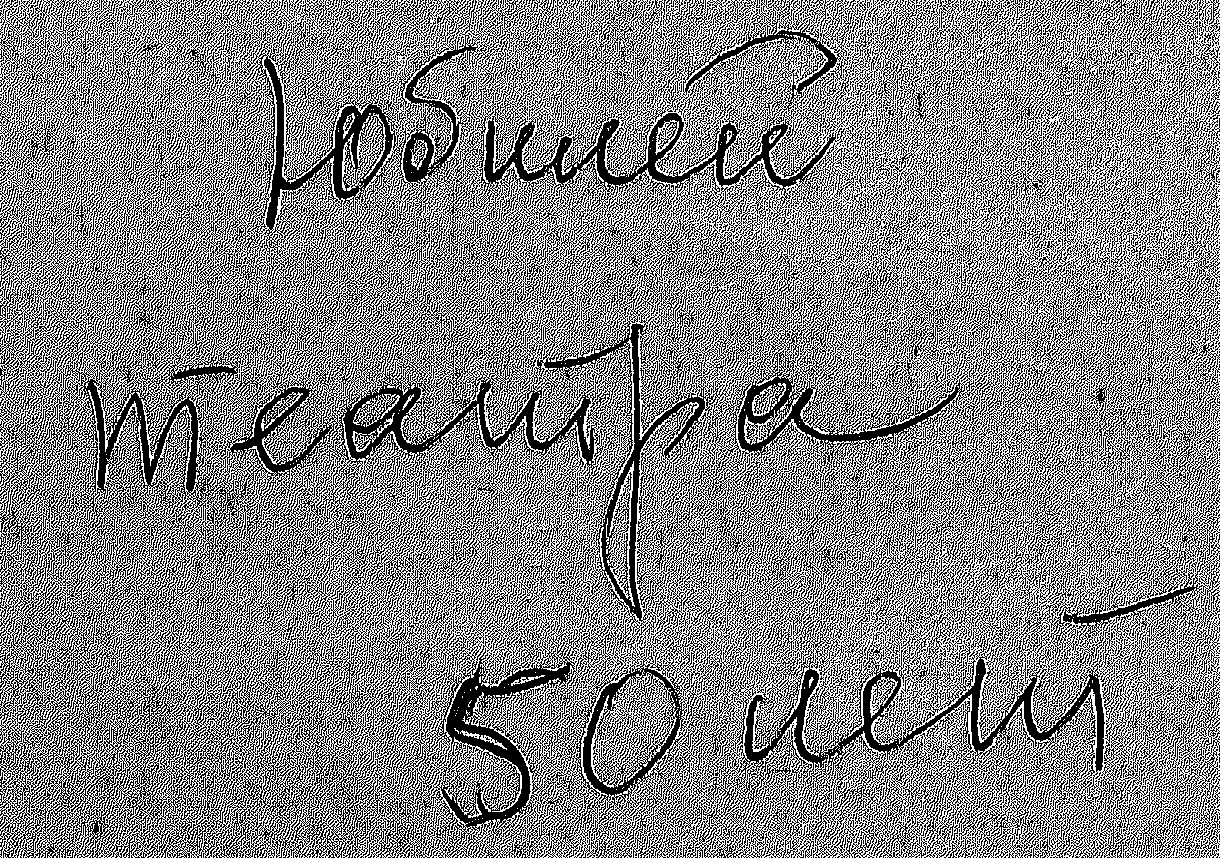 Юбилей
театра
50 лет